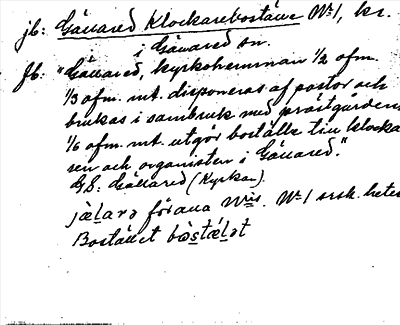 jb: Gällared Klockarebostäue № 1, kr.
i Gällared sn.
Jb: "Gällared, kyrkohemman 1/2 ofm.
1/3 ofm. mt. disponeras af pastor och
brukas i sambruk med prästgården
1/6 ofm. mt. utgör boställe till klocka
ren och organisten i Gällared."
GS: Gällared (Kyrkan).
jä̀larə förana № 1 srsk. heter
Bostället bòstǽlət